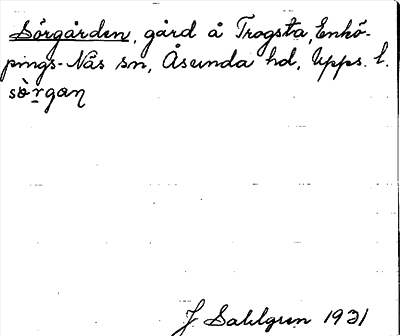 Sörgården, gård å Trogsta, Enkö-
pings-Näs sn, Åsunda hd, Upps. l.
sὲrgaɳ
J. Sahlgren 1931